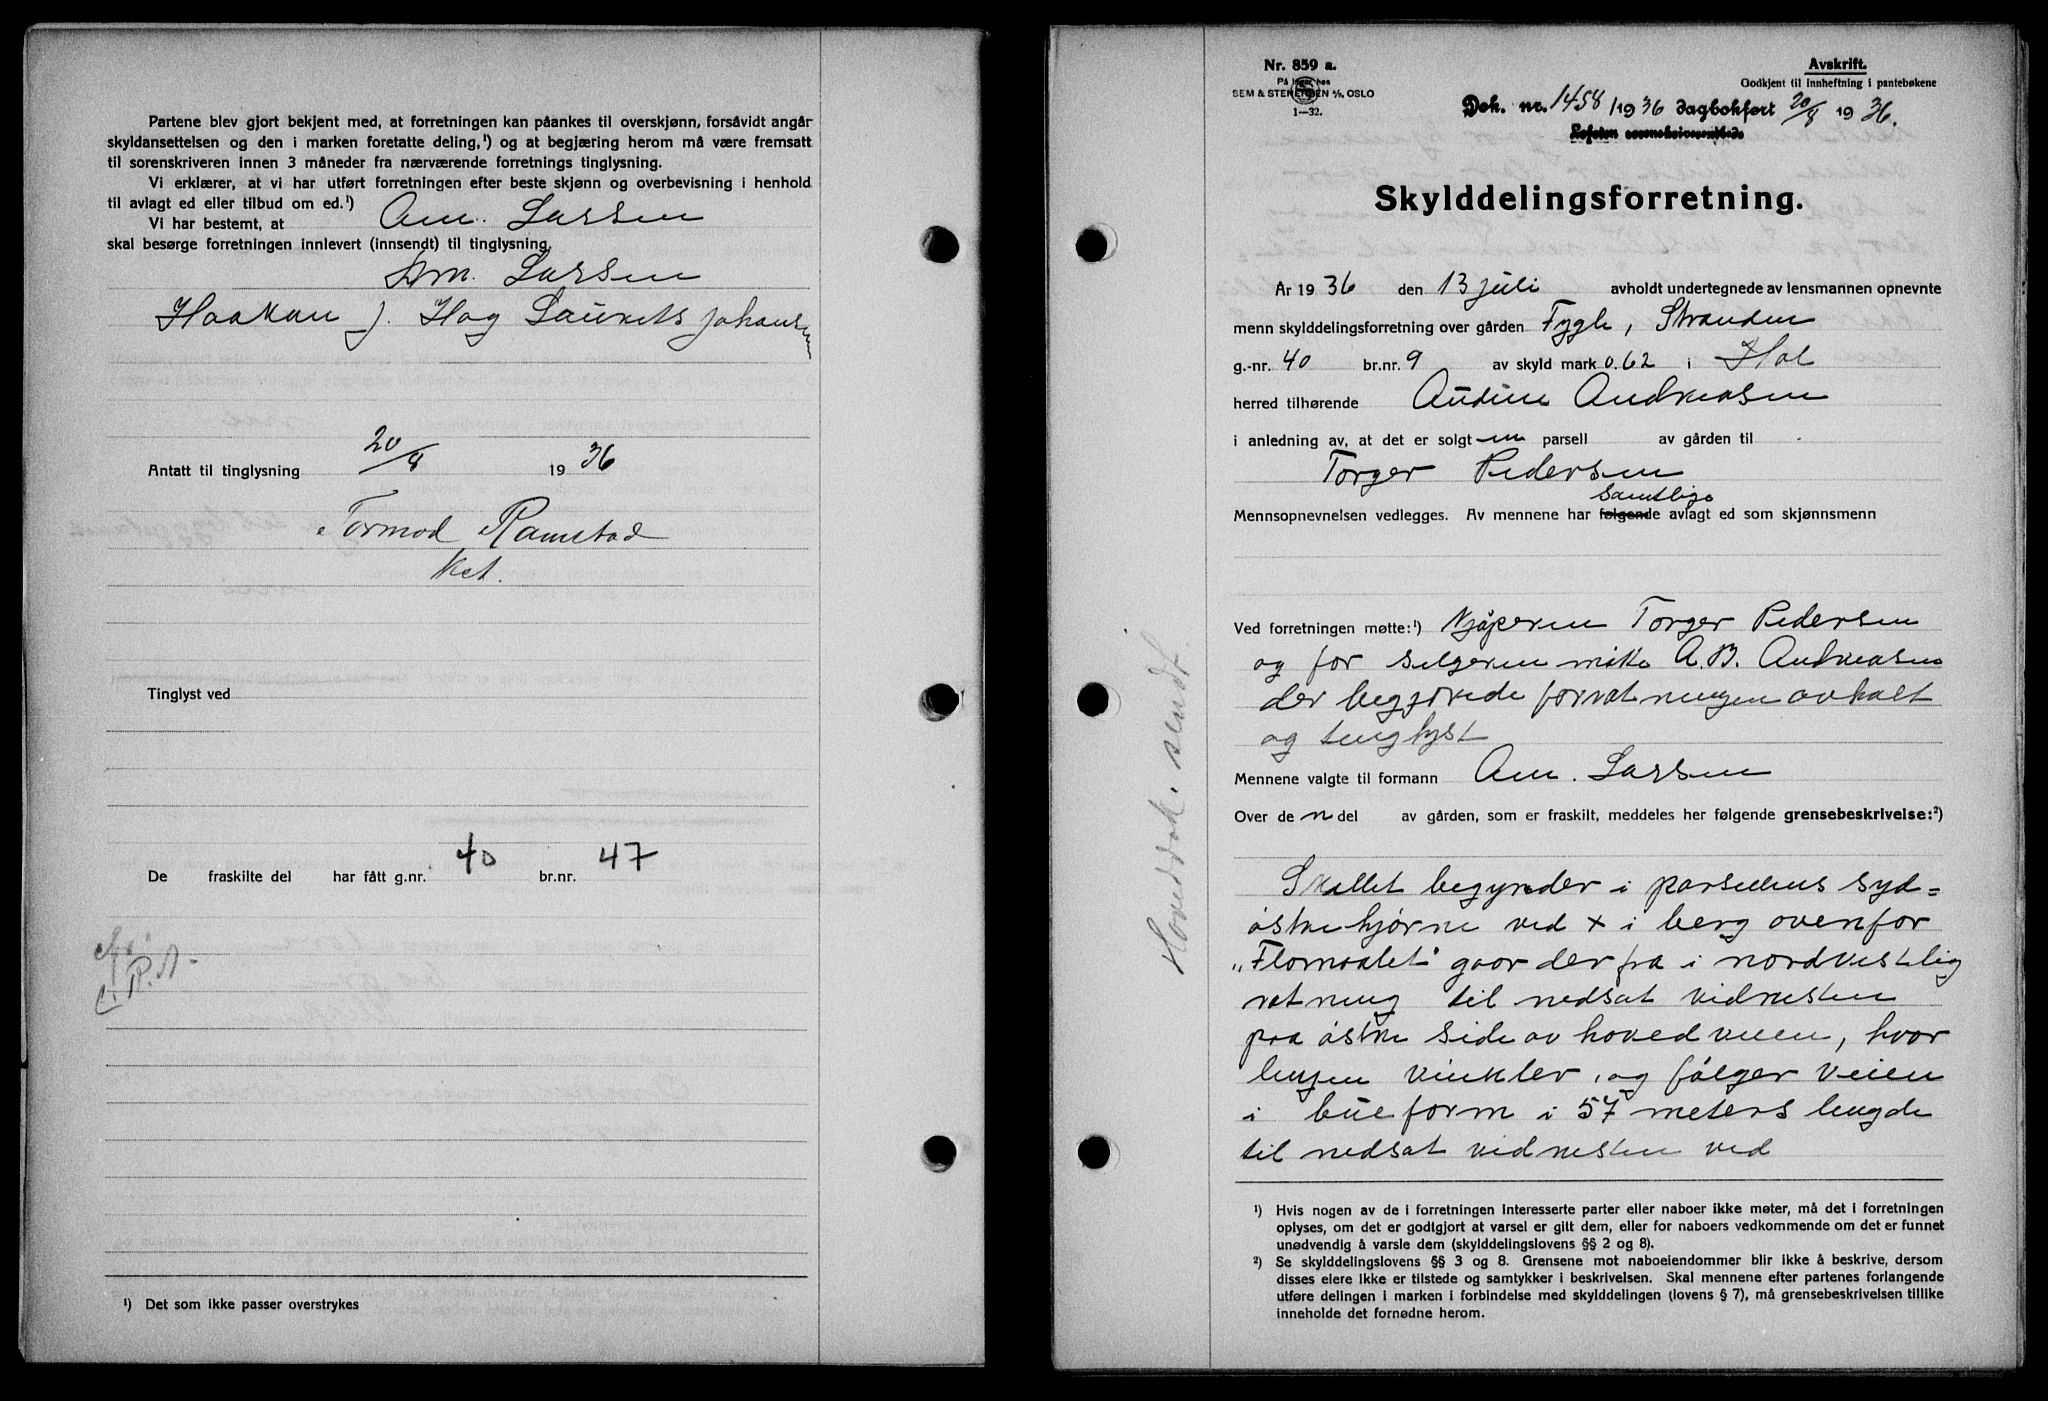 Partene blev gjort bekjent med, at forretningen kan påankes til overskjønn, forsåvidt angår
skyldansettelsen og den i marken foretatte deling,¹) og at begjæring herom må være fremsatt
til sorenskriveren innen 3 måneder fra nærværende forretnings tinglysning.
Vi erklærer, at vi har utført forretningen efter beste skjønn og overbevisning i henhold
til avlagt ed eller tilbud om ed.¹)
Vi har bestemt, at Am. Larsen
skal besørge forretningen innlevert (innsendt) til tinglysning.
Am. Larsen
Haakon J. Hag Laurits Johansen
Antatt til tinglysning 20/8 1936
Tormod Ramstad
kst.
Tinglyst ved
De fraskilte del har fått g.nr. 40 br.nr. 47
¹) Det som ikke passer overstrykes
Nr. 859 a.
På lager hos
SEM & STENERSEN A/S, OSLO
1—32.
Avskrift.
Godkjent til innheftning i pantebøkene
Dok. nr. 1458/1936 dagbokført 20/8 1936.
Lofoten sorenskriverembede
Skylddelingsforretning.
År 1936 den 13 juli avholdt undertegnede av lensmannen opnevnte
menn skylddelingsforretning over gården Fygle, Stranden
g.-nr. 40 br.nr. 9 av skyld mark 0.62 i Hol
herred tilhørende Audine Andreasen
i anledning av, at det er solgt en parsell av gården til
Torger Pedersen
samtlige
Mennsopnevnelsen vedlegges. Av mennene har følgende avlagt ed som skjønnsmenn
Ved forretningen møtte:¹) Kjøperen Torger Pedersen
og for selgeren møtte A. B. Andreasen
der begjærede forretningen avholt
og tinglyst
Mennene valgte til formann Am. Larsen
Over den del av gården, som er fraskilt, meddeles her følgende grensebeskrivelse:²)
Skillet begynder i parsellens syd=
østre hjørne ved x i berg ovenfor
„Flomaalet" gaar derfra i nordvestlig
retning til nedsat vidnesten
paa østre side av hovedveien, hvor
linjen vinkler, og følger veien
i bueform i 57 meters lengde
til nedsat vidnesten ved
Hoveddok. sendt.
¹) Hvis nogen av de i forretningen interesserte parter eller naboer ikke møter, må det i forretningen
oplyses, om det er godtgjort at varsel er gitt dem, eller for naboers vedkommende om det er funnet
unødvendig å varsle dem (skylddelingslovens §§ 2 og 8).
²) Se skylddelingslovens §§ 3 og 8. Grensene mot naboeiendommer blir ikke å beskrive, dersom
disses eiere ikke er tilstede og samtykker i beskrivelsen. Skal mennene efter partenes forlangende
utføre delingen i marken i forbindelse med skylddelingen (lovens § 7), må grensebeskrivelsen tillike
inneholde det fornødne herom.